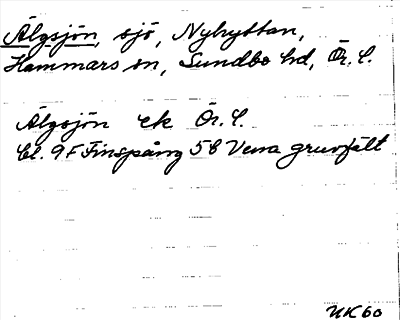 Älgsjön, sjö, Nyhyttan,
Hammars sn, Sundbo hd, Ör. l.
Älgsjön ek Ör. l.
bl. 9F Finspång 5b Vena gruvfält
UK60